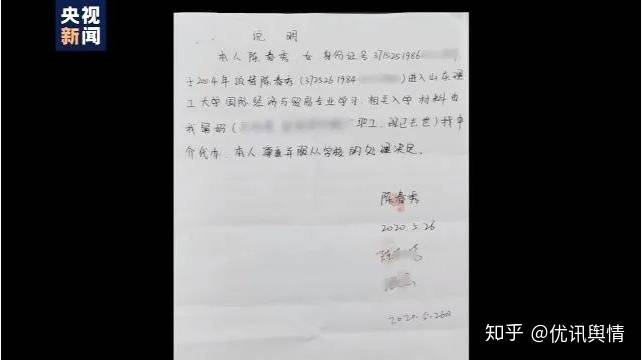 央视
新闻
说 明
本人陈春秀 女 身份证号 371525 1986
于2004年顶替陈春秀(372526 1984 )进入山东理
工大学国际经济与贸易专业学习,相关入学材料由
我舅舅( 职工,现已去世)找中
介代办,本人尊重并服从学校的处理决定。
陈春秀
2020.5.26
2020.5.26日
知乎 @优讯舆情